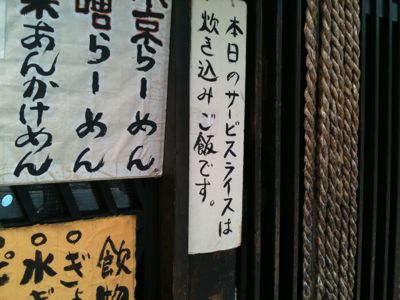 本日のサービスライスは
炊き込みご飯です。
らーめん
噌らーめん
あんかけめん
飲物
ぎょ
水ぎ